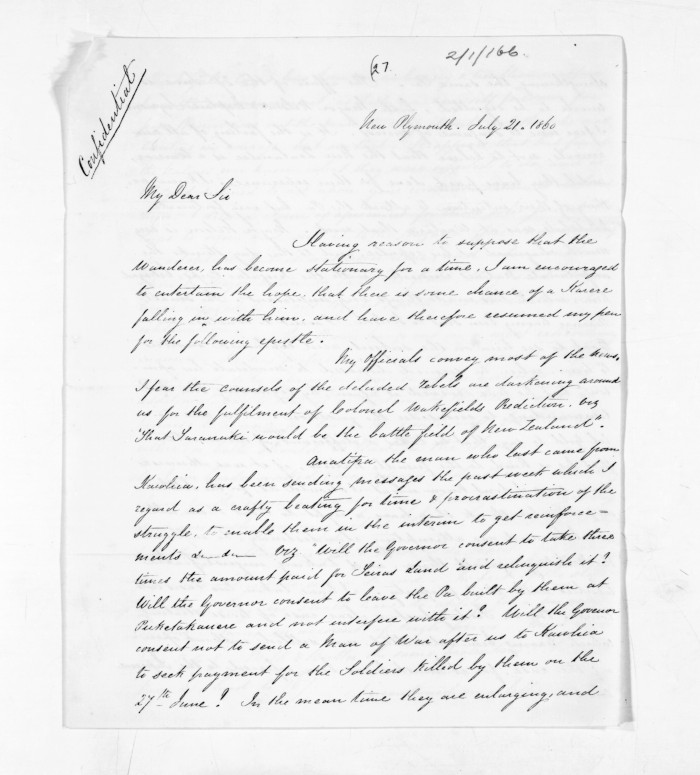 Confidential
(27
2/1/166.
New Plymouth. July 21. 1860
My Dear Sir
Having reason to suppose that the
Wanderer, has become stationary for a time, I am encouraged
to entertain the hope, that there is some chance of a Karere
falling in with him, and have therefore resumed my pen
for the following epistle.
My Officials convey most of the news,
I fear the counsels of the deluded rebels are darkening around
us for the fulfilment of Colonel Wakefields Prediction. viz
"That Taranaki would be the battle field of New Zealand".
Anatipa the man who last came from
Kawhia, has been sending messages the past week which I
regard as a crafty beating for time & procrastination of the
struggle, to enable them in the interim to get reinforce-
ments viz "Will the Governor consent to take three
times the amount paid for Teiras Land and relinquish it?
Will the Governor consent to leave the Pa built by them at
Puketakauere and not interfere with it? Will the Govenor
consent not to send a Man of War after us to Kawhia
to seek payment for the Soldiers killed by them on the
27th June? In the mean time they are enlarging, and